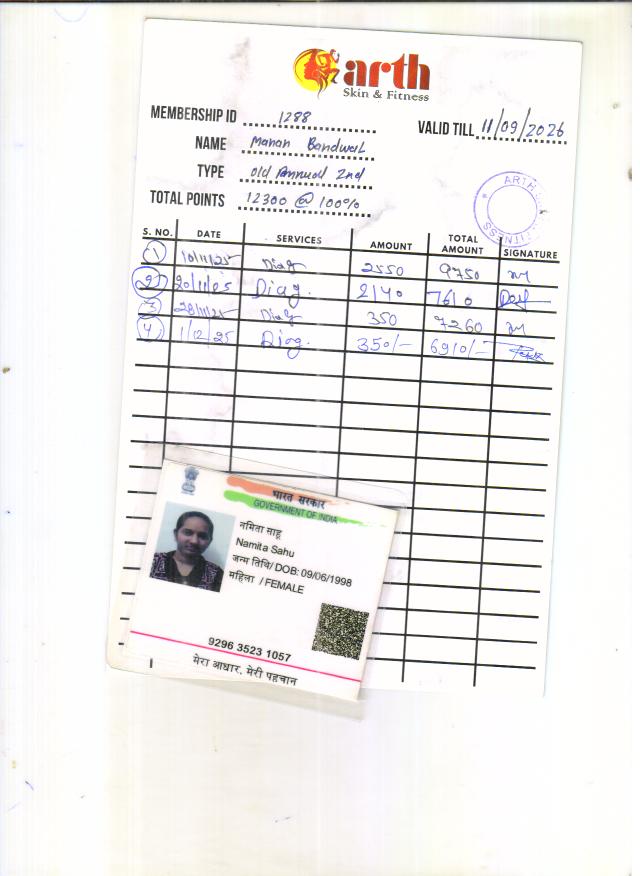 arth
Skin & Fitness
MEMBERSHIP ID 1288
VALID TILL 11/09/2026
NAME Manan Bandwal
TYPE old Annual 2nd
TOTAL POINTS 12300 @ 100%
ARTH FITNESS
S. NO. DATE SERVICES AMOUNT TOTAL AMOUNT SIGNATURE
1 10/11/25 Diag 2550 9750
2 20/11/25 Diag. 2140 7610
3 28/11/25 Diag 350 7260
4 1/12/25 Diag. 350/- 6910/-
भारत सरकार
GOVERNMENT OF INDIA
नमिता साहू
Namita Sahu
जन्म तिथि/ DOB: 09/06/1998
महिला / FEMALE
9296 3523 1057
मेरा आधार, मेरी पहचान